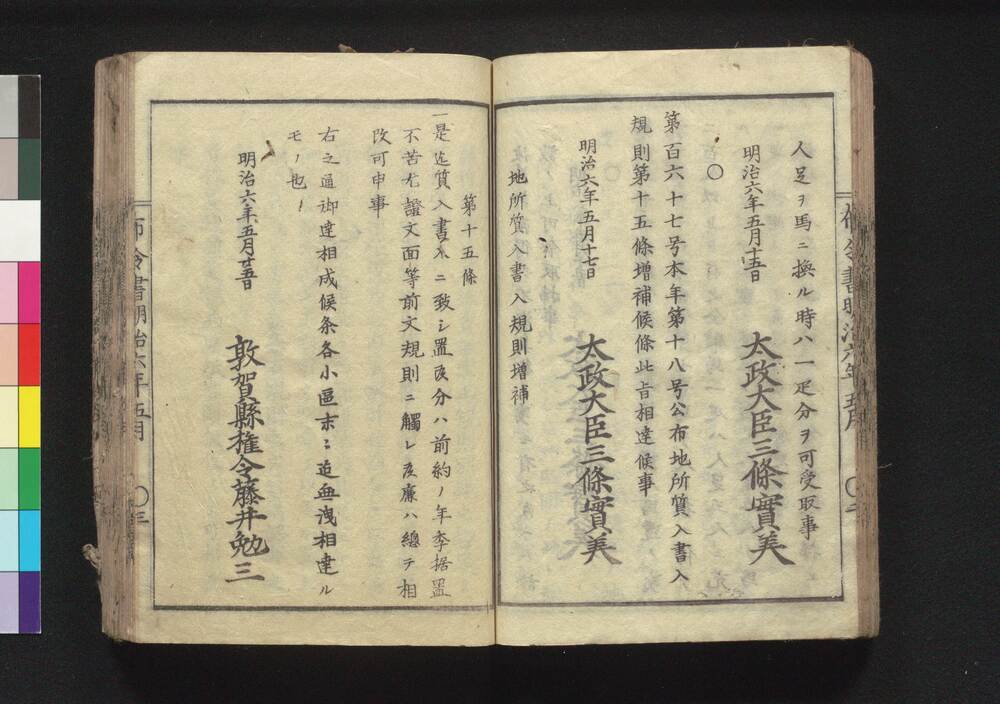 人足ヲ馬ニ換ル時ハ一疋分ヲ可受取事
明治六年五月十五日
太政大臣三條實美
〇
第百六十七号本年第十八号公布地所質入書入
規則第十五條増補候條此旨相達候事
明治六年五月十七日
太政大臣三條實美
地所質入書入規則増補
第十五條
一是迄質入書入ニ致シ置候分ハ前約ノ年季据置
不苦尤證文面等前文規則ニ觸レ候廉ハ總テ相
改可申事
右之通御達相成候条各小區末々迄無洩相達ル
モノ也
明治六年五月廿五日
敦賀縣権令藤井勉三
布令書明治六年五月
〇三